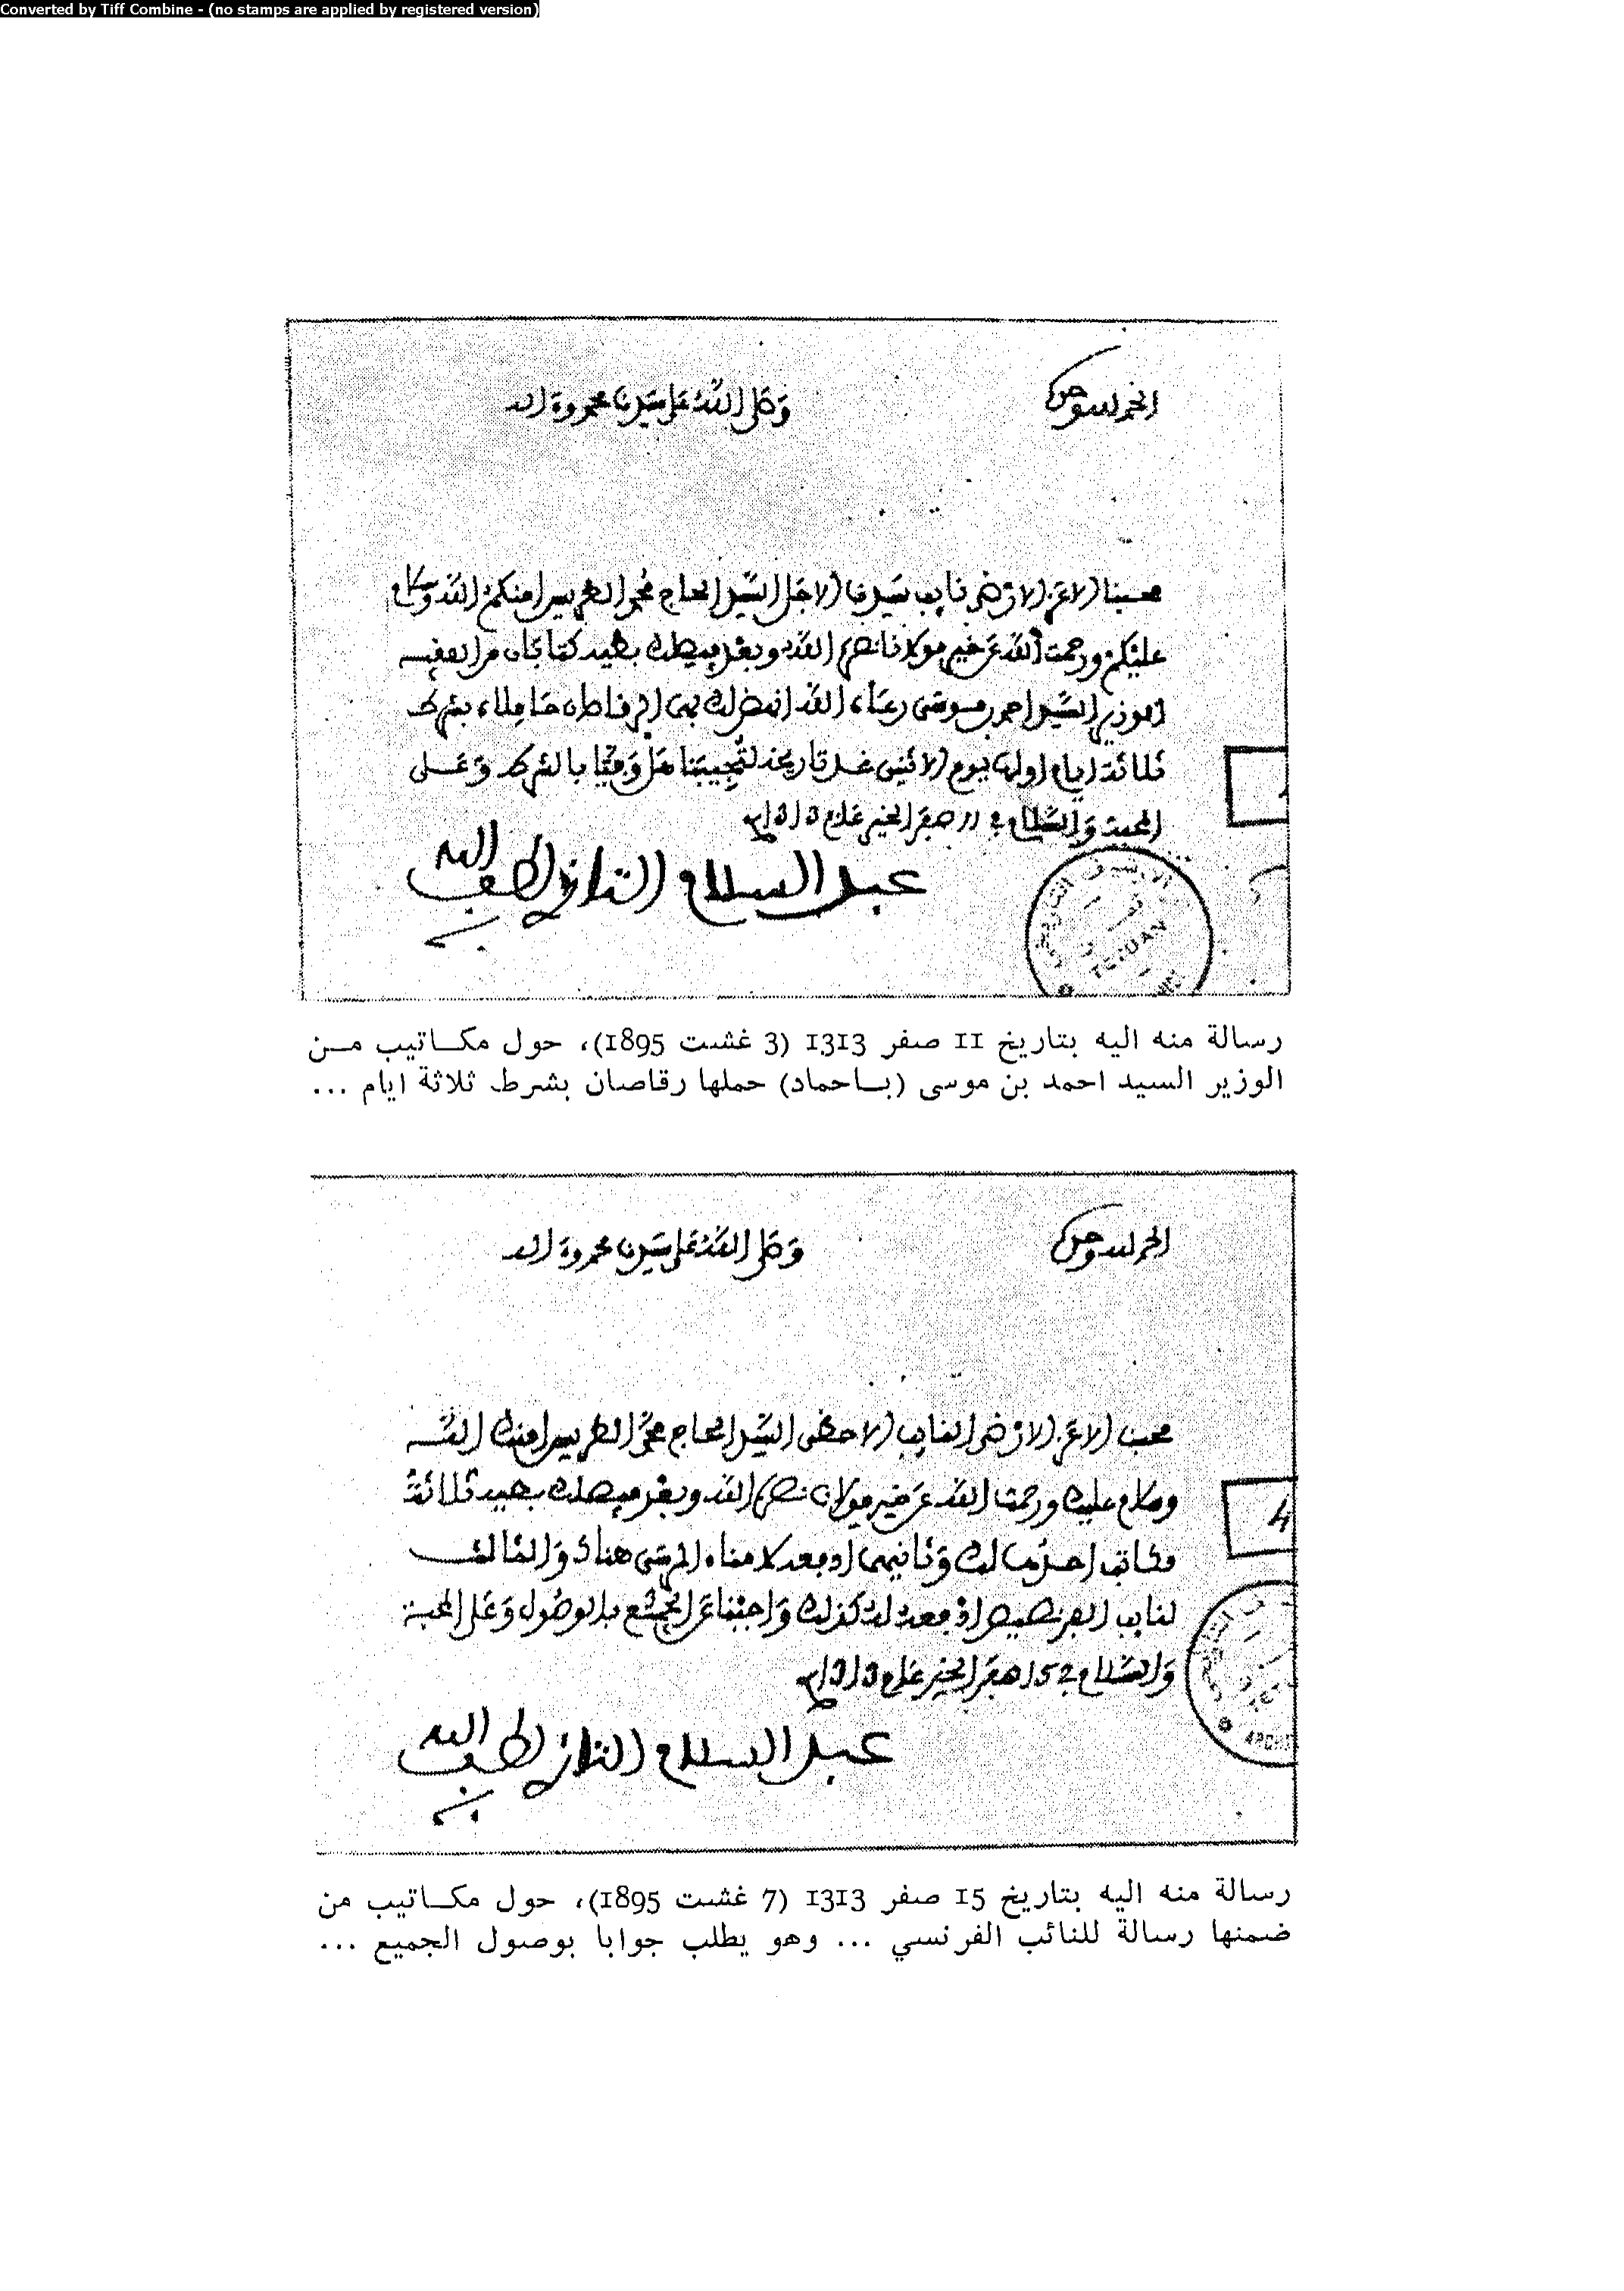 Converted by Tiff Combine - (no stamps are applied by registered version)
الحمد لله وحده
وصلى الله على سيدنا محمد وءاله
محبنا الاعز الارضى نايب سيدنا الاجل السيد الحاج محمد الطريس امنكم الله وسلام
عليكم ورحمت الله عن خير مولانا نصره الله وبعد فيصلك بطيه كتابان من الفقيه
الوزير السيد احمد بن موسى رعاه الله انهض لك بهما الرقاصان حاملاه بشرط
ثلاثة ايام اولها يوم الاثنين غد تاريخه لتجيبنا هل وفيا بالشرط وعلى
المحبة والسلام في 11 صفر الخير عام 1313
عبد السلام التازي لطف الله به
TETUAN
رسالة منه اليه بتاريخ 11 صفر 1313 (3 غشت 1895)، حول مكـاتيب مـن
الوزير السيد احمد بن موسى (بـاحماد) حملها رقاصان بشرط ثلاثة ايام ...
الحمد لله وحده
وصلى الله على سيدنا محمد وءاله
محبنا الاعز الارضى النايب الاحظى السيد الحاج محمد الطريس امنك الله
وسلام عليك ورحمت الله عن خير مولانا نصره الله وبعد فيصلك بطيه ثلاثة
مكاتب احدها لك وثانيها ادفعه لامناء المرسى هناك والثالث
لنايب الفرنصيص ادفعه له كذلك واجبنا عن الجميع بالوصول وعلى المحبة
والسلام في 15 صفر الخير عام 1313
4
عبد السلام التازي لطف الله به
رسالة منه اليه بتاريخ 15 صفر 1313 (7 غشت 1895)، حول مكـاتيب من
ضمنها رسالة للنائب الفرنسي ... وهو يطلب جوابا بوصول الجميع ...